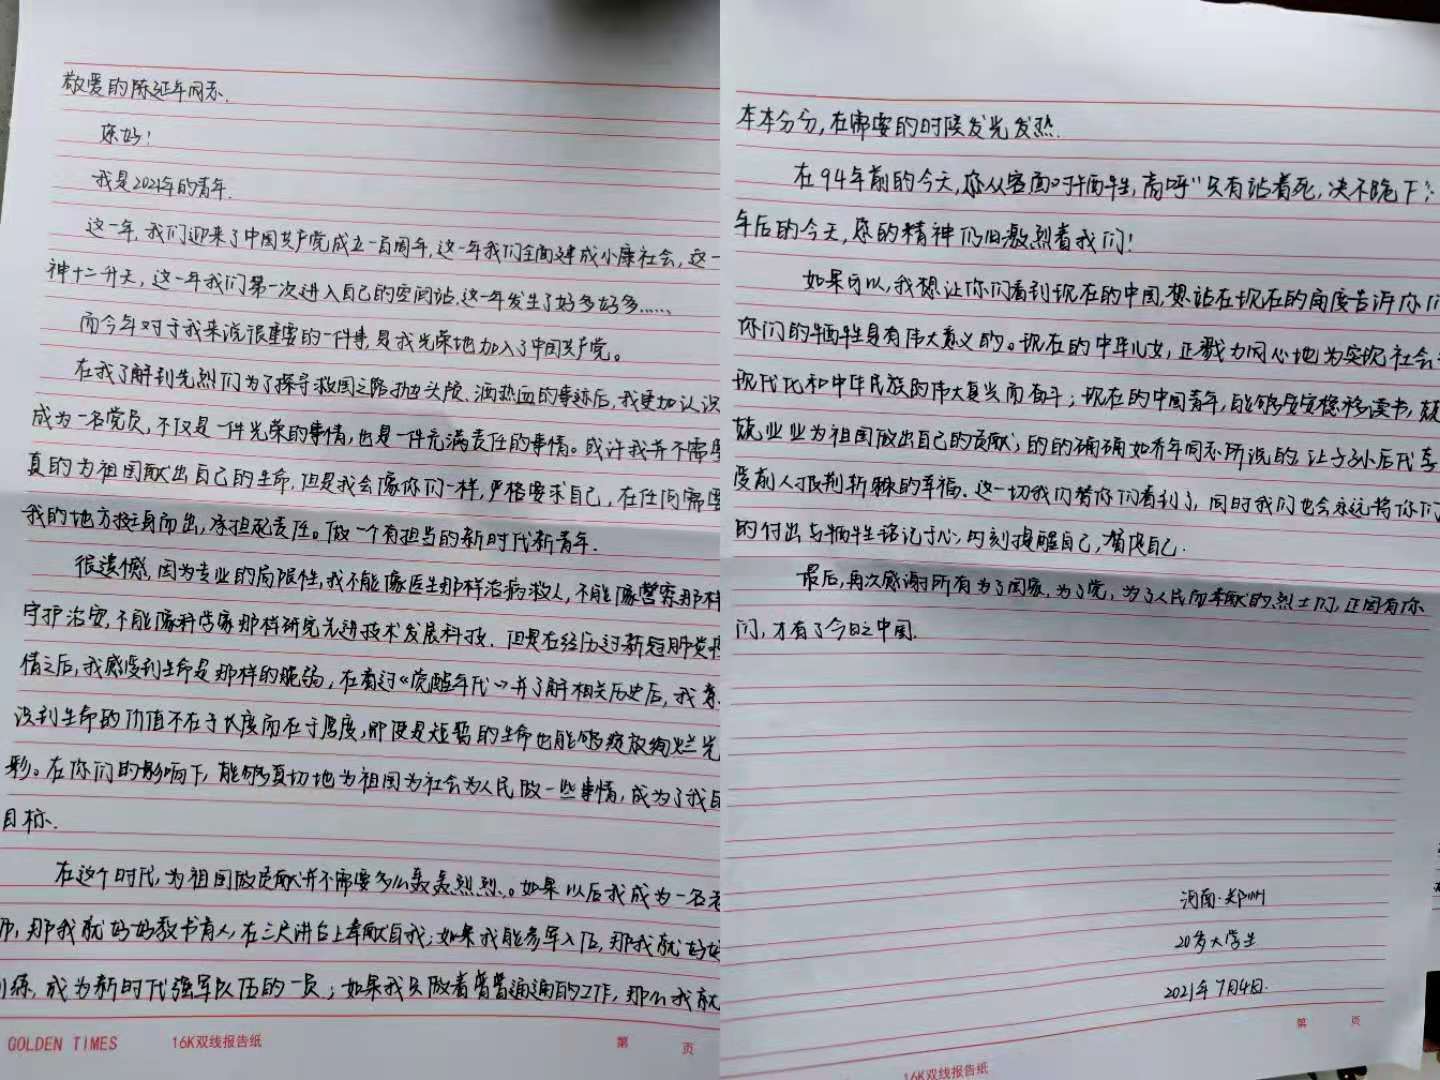 敬爱的陈延年同志.
您好！
我是2021年的青年.
这一年,我们迎来了中国共产党成立一百周年,这一年我们全面建成小康社会,这一
神十二升天,这一年我们第一次进入自己的空间站.这一年发生了好多好多......
而今年对于我来说很重要的一件事,是我光荣地加入了中国共产党。
在我了解到先烈们为了探寻救国之路抛头颅、洒热血的事迹后,我更加认识
成为一名党员,不仅是一件光荣的事情,也是一件充满责任的事情。或许我并不需要
真的为祖国献出自己的生命,但是我会像你们一样,严格要求自己,在任何需要
我的地方挺身而出,承担起责任。做一个有担当的新时代新青年.
很遗憾,因为专业的局限性,我不能像医生那样治病救人,不能像警察那样
守护治安,不能像科学家那样研究先进技术发展科技.但是在经历过新冠肺炎疫
情之后,我感受到生命是那样的脆弱,在看过《觉醒年代》并了解相关历史后,我意
识到生命的价值不在于长度而在于厚度,即使是短暂的生命也能够绽放绚烂光
彩。在你们的影响下,能够真切地为祖国为社会为人民做一些事情,成为了我的
目标.
在这个时代,为祖国做贡献并不需要多么轰轰烈烈.。如果以后我成为一名老
师,那我就好好教书育人,在三尺讲台上奉献自我;如果我能参军入伍,那我就好好
训练,成为新时代强军队伍的一员;如果我只做着普普通通的工作,那么我就
GOLDEN TIMES 16K双线报告纸 第 页
本本分分,在需要的时候发光发热.
在94年前的今天,您从容面对牺牲,高呼“只有站着死,决不跪下”
年后的今天,您的精神仍旧激烈着我们!
如果可以,我想让你们看到现在的中国,想站在现在的角度告诉你们
你们的牺牲是有伟大意义的。现在的中华儿女,正戮力同心地为实现社会
现代化和中华民族的伟大复兴而奋斗;现在的中国青年,能够安安稳稳读书,兢
兢业业为祖国做出自己的贡献;的的确确如乔年同志所说的让子孙后代享
受前人披荆斩棘的幸福.这一切我们替你们看到了,同时我们也会永远将你们
的付出与牺牲铭记于心,时刻提醒自己,督促自己.
最后,再次感谢所有为了国家,为了党,为了人民而奉献的烈士们,正因有你
们,才有了今日之中国.
河南·郑州
20多大学生
2021年7月4日.
第 页
16K双线报告纸